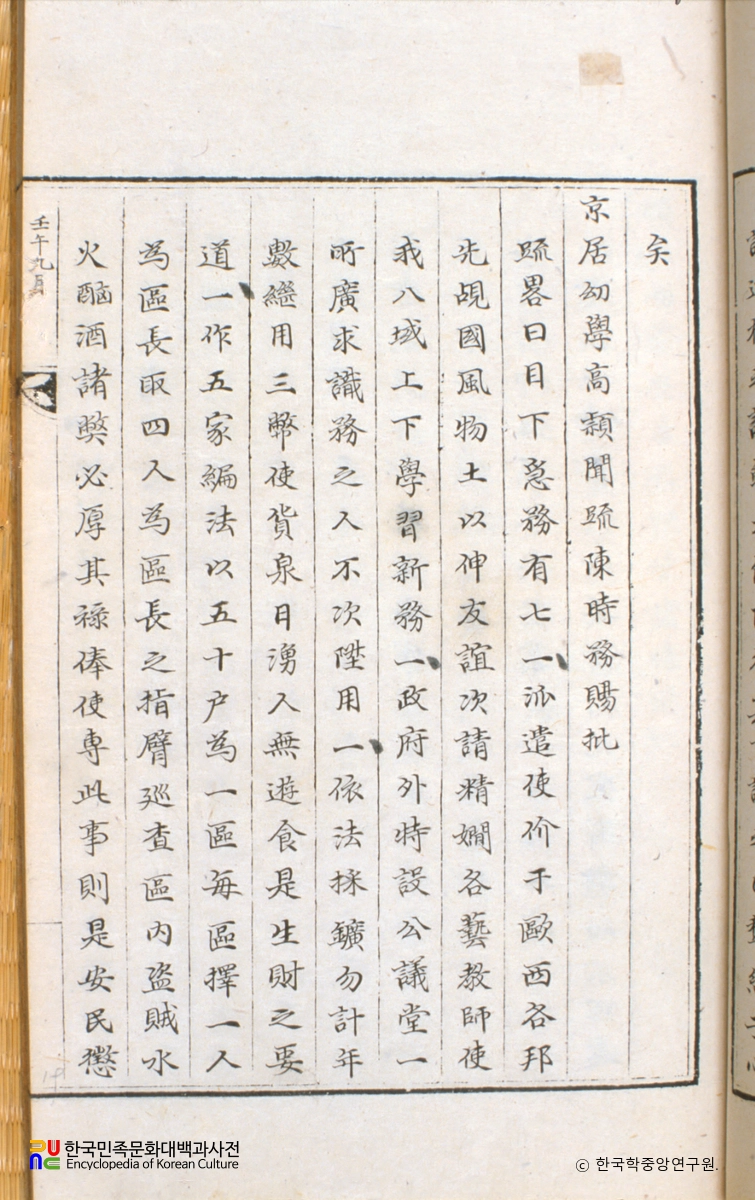 矣
京居幼學高穎聞疏陳時務賜批
疏畧曰目下急務有七一派遣使价于歐西各邦
先覘國風物土以伸友誼次請精嫺各藝教師使
我八域上下學習新務一政府外特設公議堂一
所廣求識務之人不次陞用一依法採鑛勿計年
數繼用三幣使貨泉日湧人無遊食是生財之要
道一作五家編法以五十户為一區每區擇一人
為區長取四人為區長之指臂廵查區內盜賊水
火酗酒諸獘必厚其祿俸使專此事則是安民懲
壬午九月
한국민족문화대백과사전
Encyclopedia of Korean Culture
© 한국학중앙연구원.